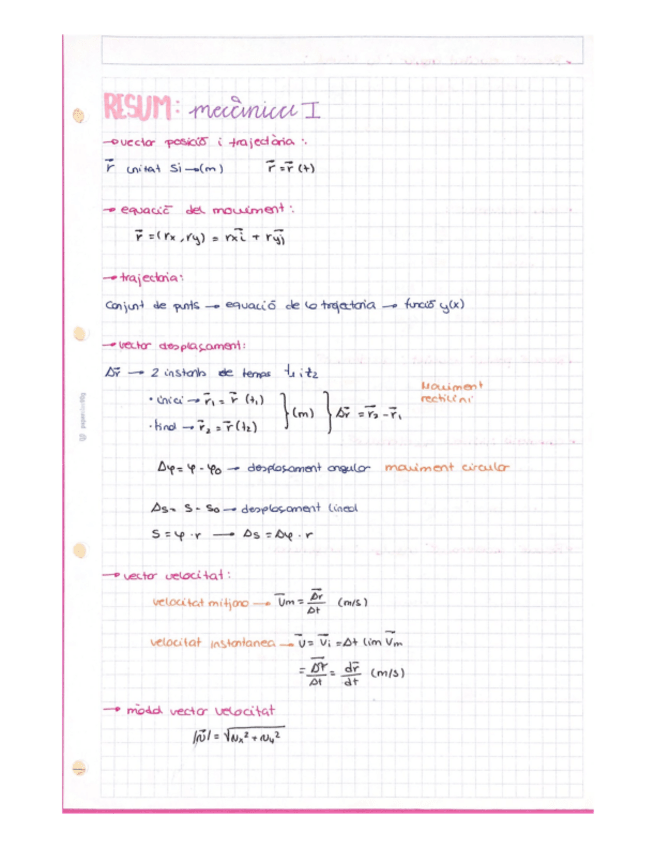 RESUM: mecànica I
→ vector posició i trajectòria:
r⃗ unitat SI → (m) r⃗ = r⃗ (t)
→ equació del moviment:
r⃗ = (rx, ry) = rx i⃗ + ry j⃗
→ trajectoria:
Conjunt de punts → equació de la trajectoria → funció y(x)
→ vector desplaçament:
Δr⃗ → 2 instants de temps t₁ i t₂
Moviment rectilini
• inici → r⃗₁ = r⃗ (t₁)
• final → r⃗₂ = r⃗ (t₂)
} (m) } Δr⃗ = r⃗₂ - r⃗₁
Δφ = φ - φ₀ → desplaçament angular moviment circular
Δs = S - S₀ → desplaçament lineal
S = φ · r → Δs = Δφ · r
→ vector velocitat:
velocitat mitjana → v⃗m = Δr⃗/Δt (m/s)
velocitat instantanea → v⃗ = v⃗i = Δt lim v⃗m
= Δr⃗/Δt = dr⃗/dt (m/s)
→ mòdul vector velocitat
|v⃗| = √vx² + vy²